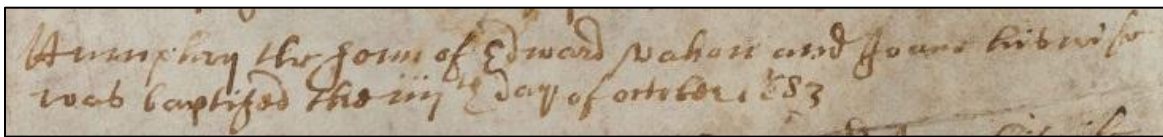 Humphry the sonn of Edward and Joane his wife
was baptized the iiij th day of october 1683